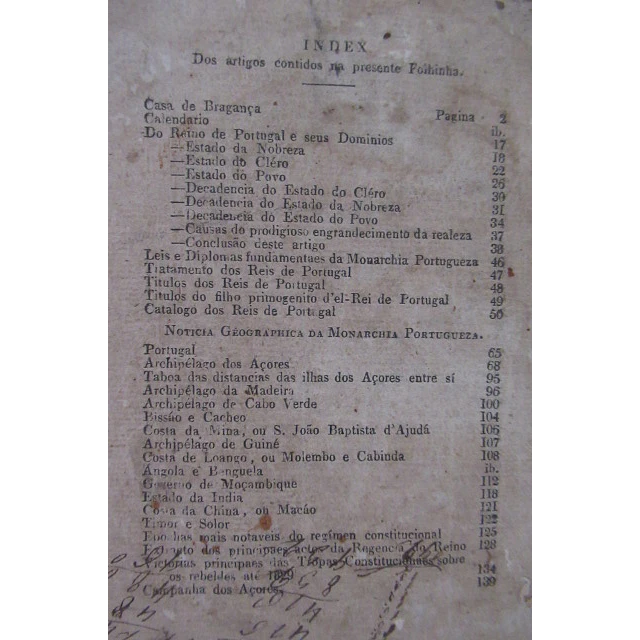 INDEX
Dos artigos contidos na presente Folhinha.
Casa de Bragança Pagina 2
Calendario ib.
Do Reino de Portugal e seus Dominios 17
—Estado da Nobreza 18
—Estado do Cléro 22
—Estado do Povo 26
—Decadencia do Estado do Cléro 30
—Decadencia do Estado da Nobreza 31
—Decadencia do Estado do Povo 34
—Causas do prodigioso engrandecimento da realeza 37
—Conclusão deste artigo 38
Leis e Diplomas fundamentaes da Monarchia Portugueza 46
Tratamento dos Reis de Portugal 47
Titulos dos Reis de Portugal 48
Titulos do filho primogenito d'el-Rei de Portugal 49
Catalogo dos Reis de Portugal 50
NOTICIA GEOGRAPHICA DA MONARCHIA PORTUGUEZA.
Portugal 65
Archipélago dos Açores 68
Taboa das distancias das ilhas dos Açores entre sí 95
Archipélago da Madeira 96
Archipélago de Cabo Verde 100
Bissão e Cacheo 104
Costa da Mina, ou S. João Baptista d'Ajudá 106
Archipélago de Guiné 107
Costa de Loango, ou Molembo e Cabinda 108
Angola e Benguela ib.
Governo de Moçambique 112
Estado da India 118
Costa da China, ou Macáo 121
Timor e Solor 122
Epochas mais notaveis do regimen constitucional 125
Extracto dos principaes actos da Regencia do Reino 128
Victorias principaes das Tropas Constitucionaes sobre
os rebeldes até 1829 134
Campanha dos Açores 139